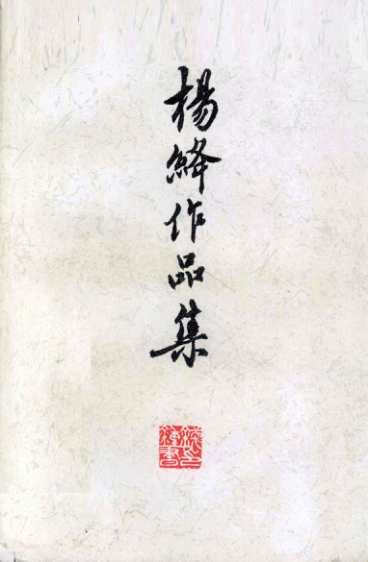 楊絳作品集